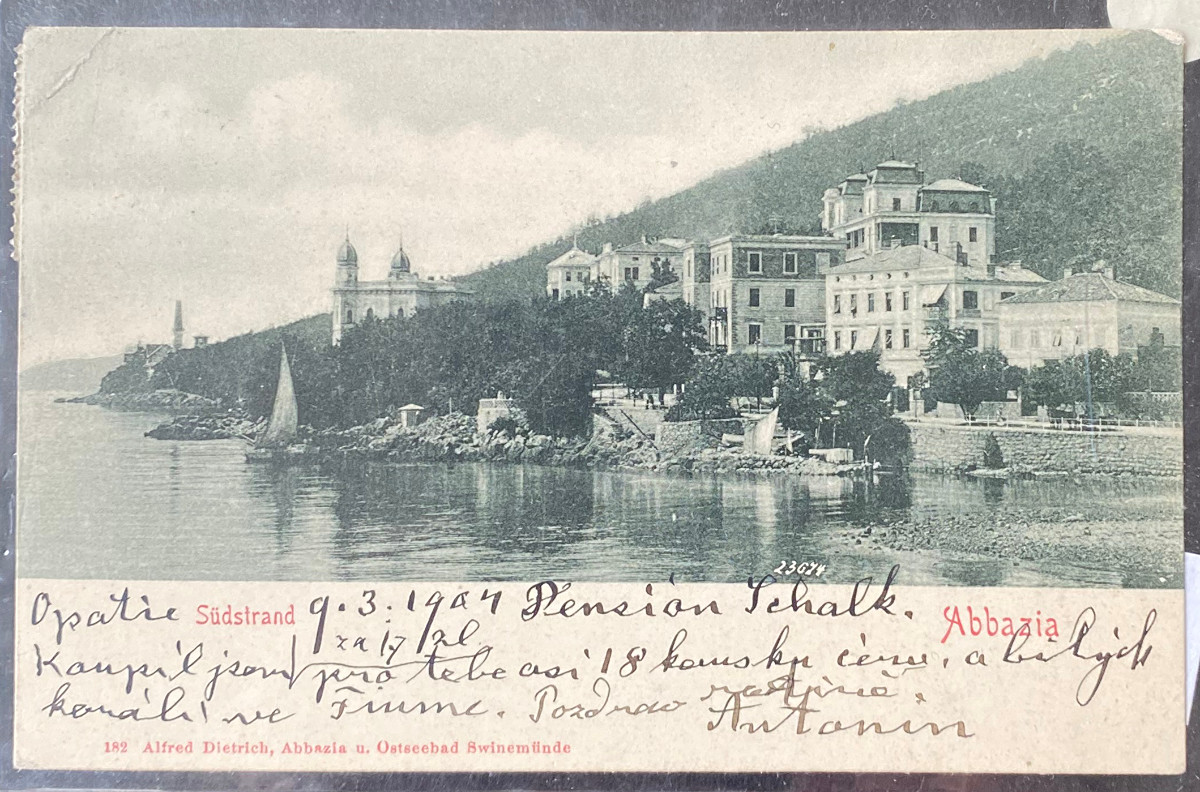 23674
Opatie Südstrand 9.3.1904 Pension Schalk. Abbazia
za 17 zl
Koupil jsem pro tebe asi 18 kousku a bilých
korálí ve Fiume. Pozdrav
Antonin
182 Alfred Dietrich, Abbazia u. Ostseebad Swinemünde